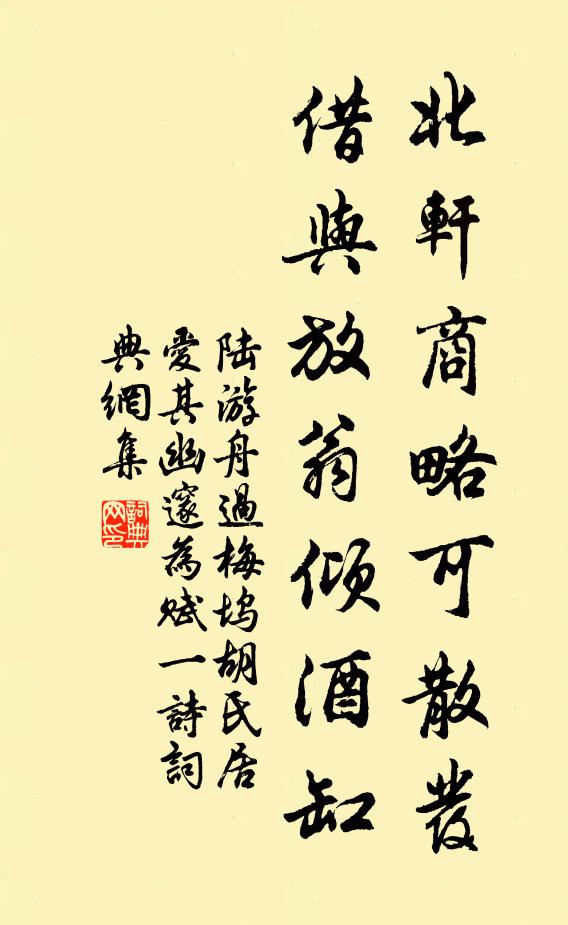 北軒商略可散髮
借與放翁傾酒缸
陆游舟過梅塢胡氏居
愛其幽邃為賦一詩詞
典網集
詞典
网印